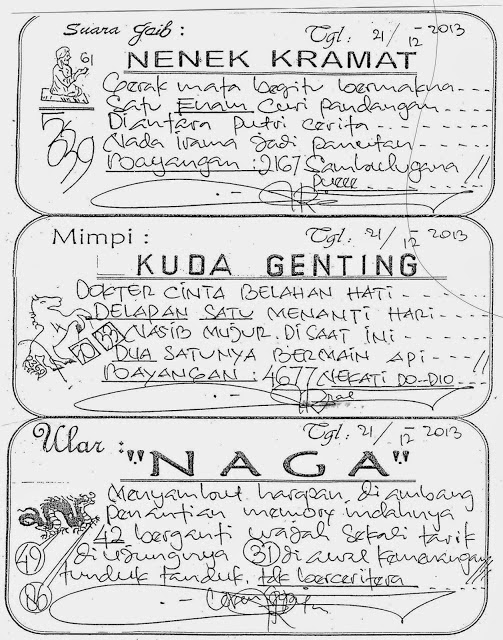 Suara Gaib : Tgl : 21/12-2013
NENEK KRAMAT
61
Gerak mata begitu bermakna
Satu Enam Curi pandangan
Diantara putri cerita
339
Nada irama jadi panutan
Bayangan : 2167 Sambelugana
Mimpi : Tgl : 21/12-2013
KUDA GENTING
DOKTER CINTA BELAHAN HATI
DELAPAN SATU MENANTI HARI
NASIB MUJUR DISAAT INI
DUA SATUNYA BERMAIN API
BAYANGAN : 4677 NEKATI DO-DIO
Ular : Tgl : 21/12-2013
"NAGA"
Menyambut harapan diambang
penantian memory indahnya
42 berganti wajah sekali tarik
49 diujungnya 31 di awal kemenangan
tunduk tanduk tdk bercerita